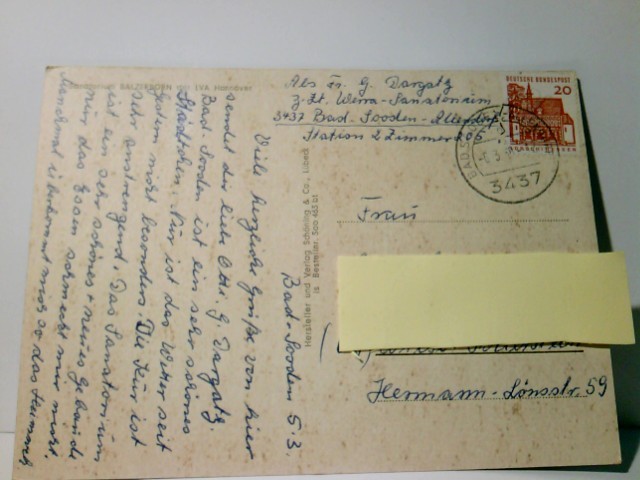 Abs. Fr. G. Dargatz
z. Zt. Werra-Sanatorium
3437 Bad-Sooden-Allendorf
Station 2 Zimmer
DEUTSCHE BUNDESPOST
20
3437
Bad-Sooden 5.3.
Viele herzliche Grüße von hier
sendet dir liebe Otti. G. Dargatz.
Bad-Sooden ist ein sehr schönes
Städtchen. Nur ist das Wetter seit
gestern nicht besonders. Die Kur ist
sehr anstrengend. Das Sanatorium
ist ein sehr schönes + neues Gebäude
nur das Essen schmeckt mir nicht.
Manchmal überkommt mich so das
Hersteller und Verlag Schöning & Co., Lübeck
Bestellnr. Soo 453
Frau
Hermann-Lönsstr. 59